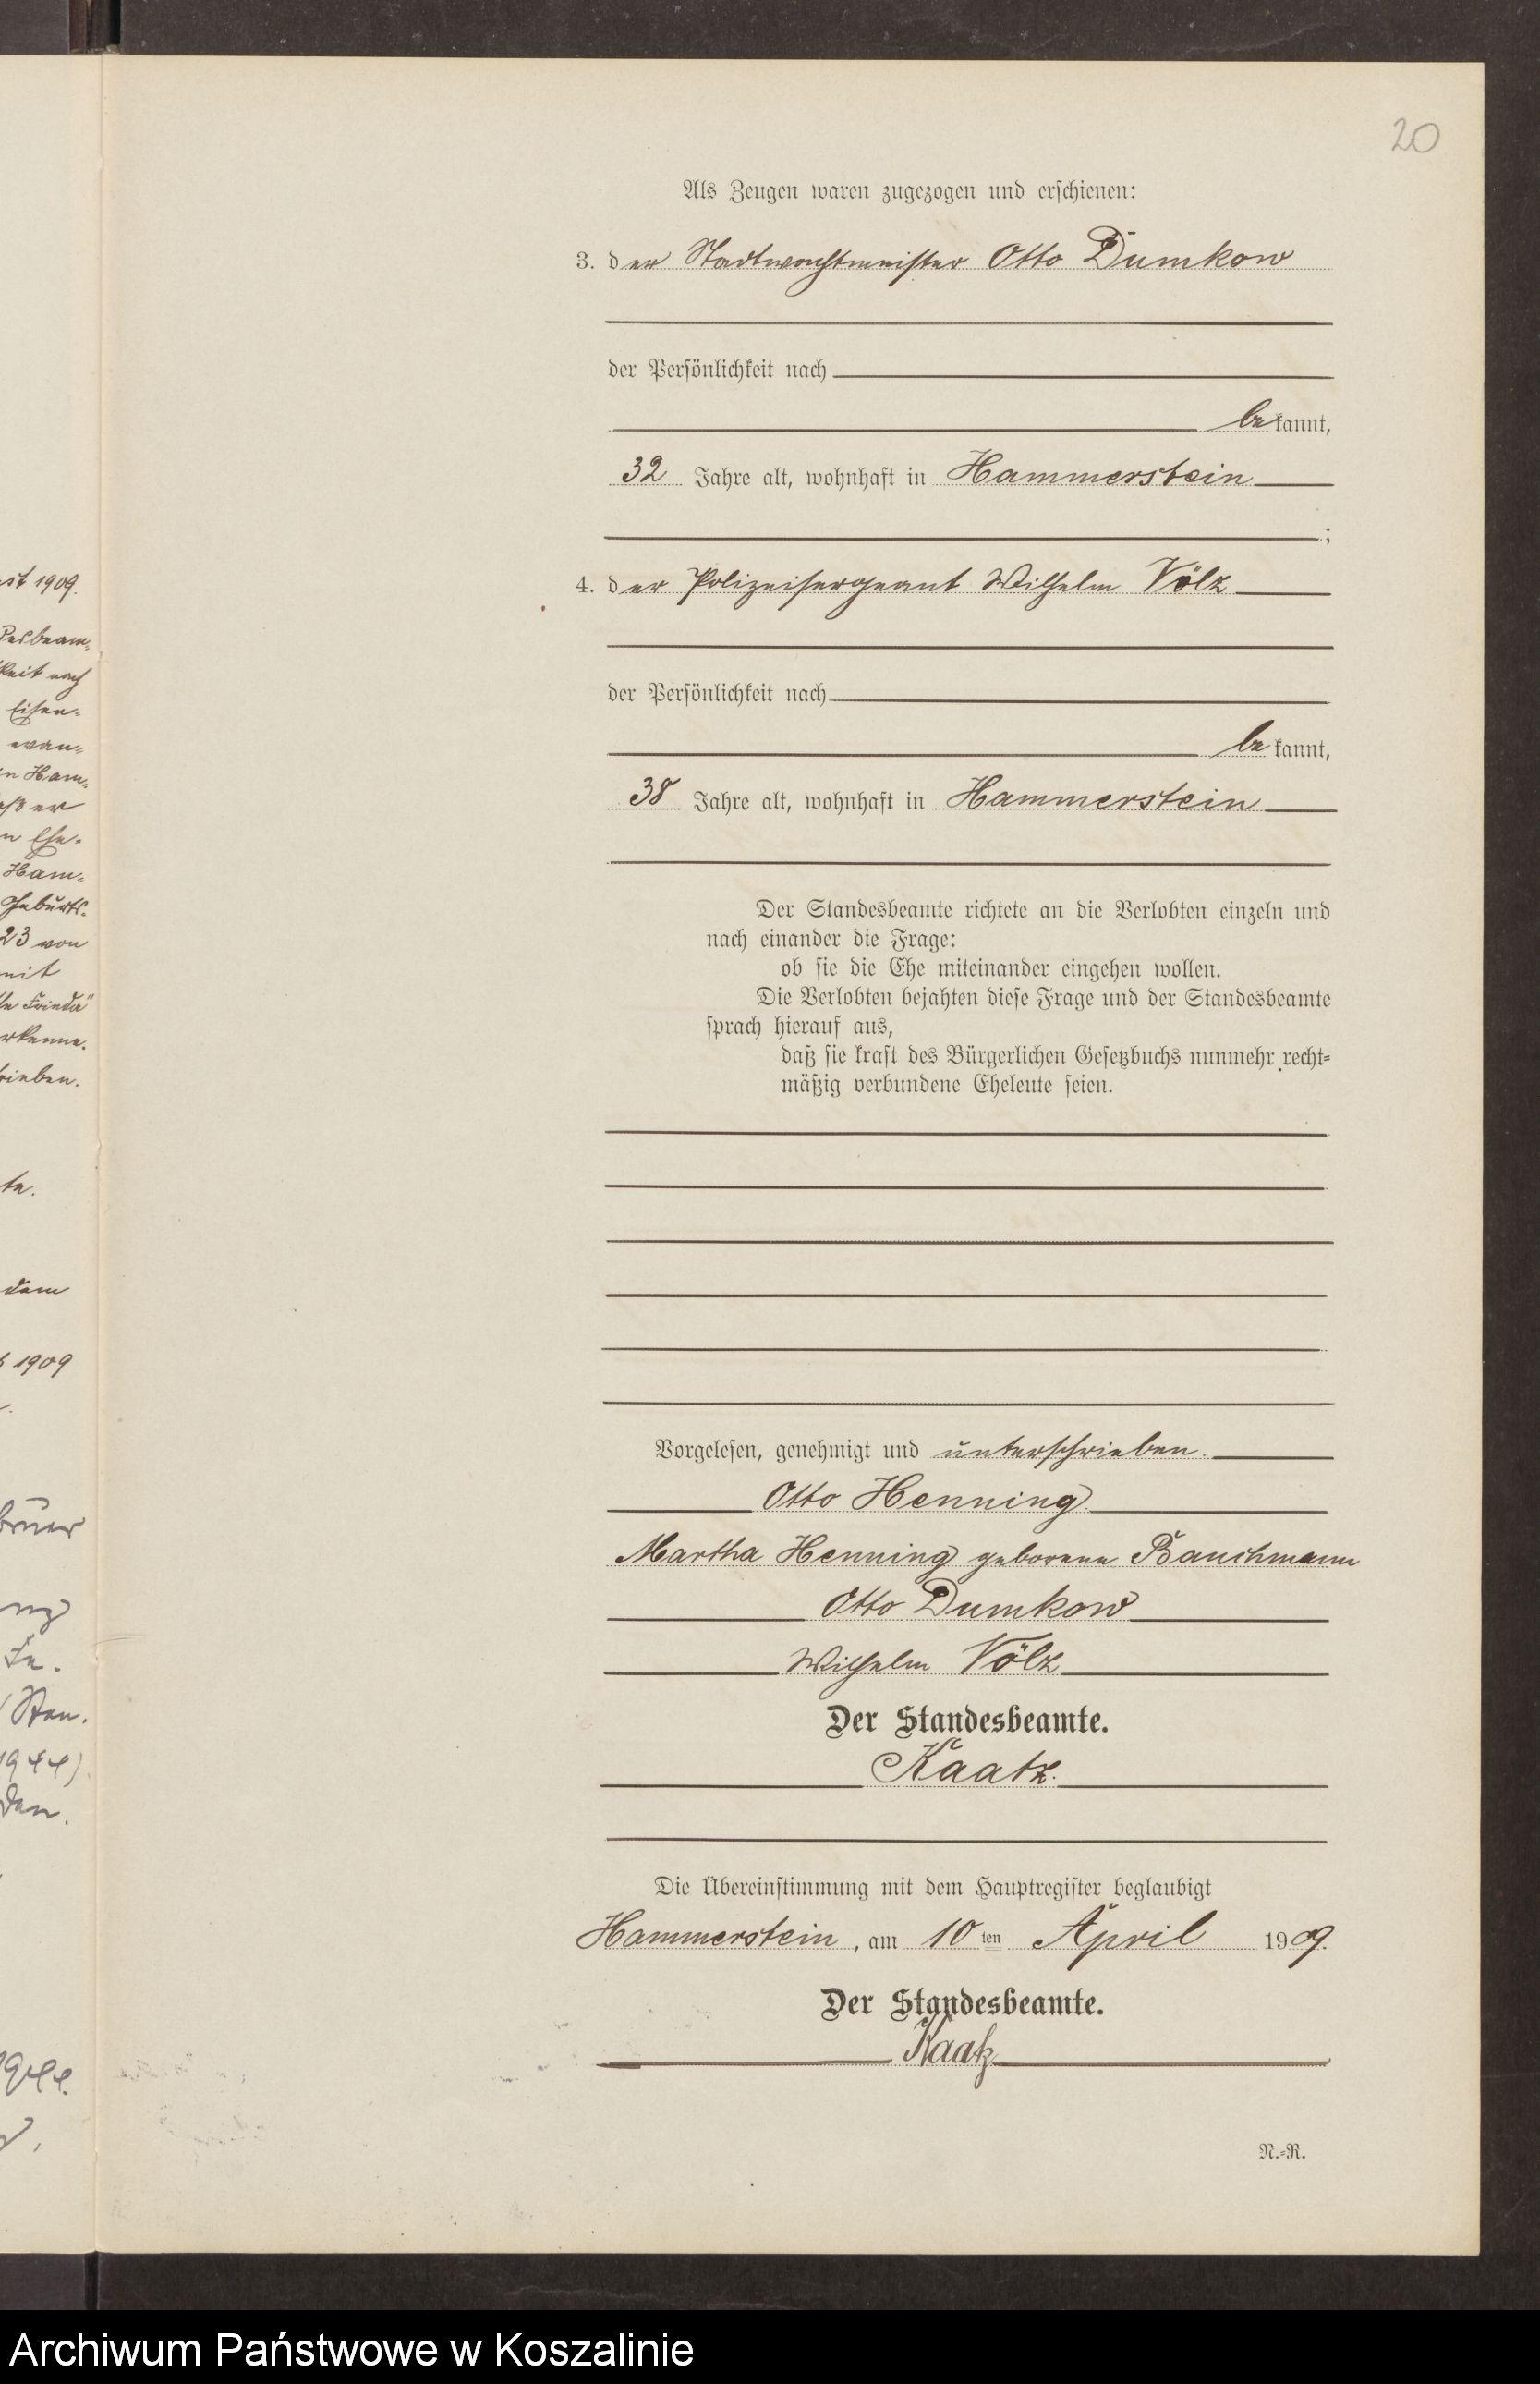 20
Als Zeugen waren zugezogen und erschienen:
3. der Stadtwachtmeister Otto Dumkow
der Persönlichkeit nach
bekannt,
32 Jahre alt, wohnhaft in Hammerstein
;
4. der Polizeisergeant Wilhelm Völz
der Persönlichkeit nach
bekannt,
38 Jahre alt, wohnhaft in Hammerstein
Der Standesbeamte richtete an die Verlobten einzeln und
nach einander die Frage:
ob sie die Ehe miteinander eingehen wollen.
Die Verlobten bejahten diese Frage und der Standesbeamte
sprach hierauf aus,
daß sie kraft des Bürgerlichen Gesetzbuchs nunmehr recht-
mäßig verbundene Eheleute seien.
Vorgelesen, genehmigt und unterschrieben.
Otto Henning
Martha Henning geborene Bauchmann
Otto Dumkow
Wilhelm Völz
Der Standesbeamte.
Kaatz.
Die Übereinstimmung mit dem Hauptregister beglaubigt
Hammerstein, am 10ten April 1909.
Der Standesbeamte.
Kaatz
N.-R.
st 1909.
keit nach
Eisen-
evan-
n Ham-
n Ehe-
Ham-
Geburts-
23 von
mit
rkenne.
rieben.
te.
dem
1909
1944)
den.
Archiwum Państwowe w Koszalinie